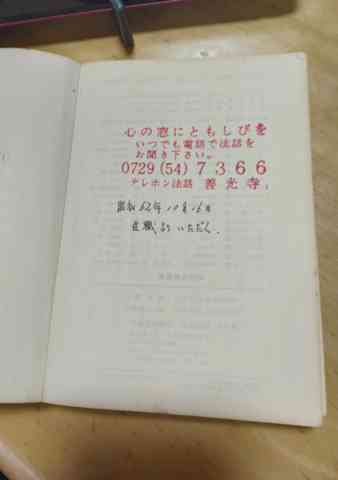 心の窓にともしびを
いつでも電話で法話を
お聞き下さい。
0729(54)7366
テレホン法話 善光寺
昭和62年10月16日
住職よりいただく.